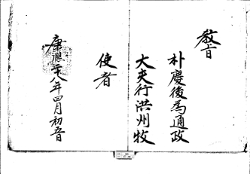 教旨
朴慶後為通政
大夫行洪州牧
使者
康熙二十八年四月初